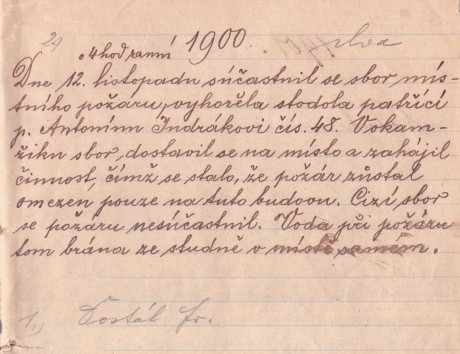 29
o 4 hod ranní 1900.
Dne 12. listopadu súčastnil se sbor mís-
tního požáru, vyhořela stodola patřící
p. Antonínu Indrákovi čís. 48. V okam-
žiku sbor dostavil se na místo a zahájil
činnost, čímž se stalo, že požár zůstal
omezen pouze na tuto budovu. Cizí sbor
se požáru nesúčastnil. Voda při požáru
tom brána ze studně v místě samém.
1.) Dostál Fr.